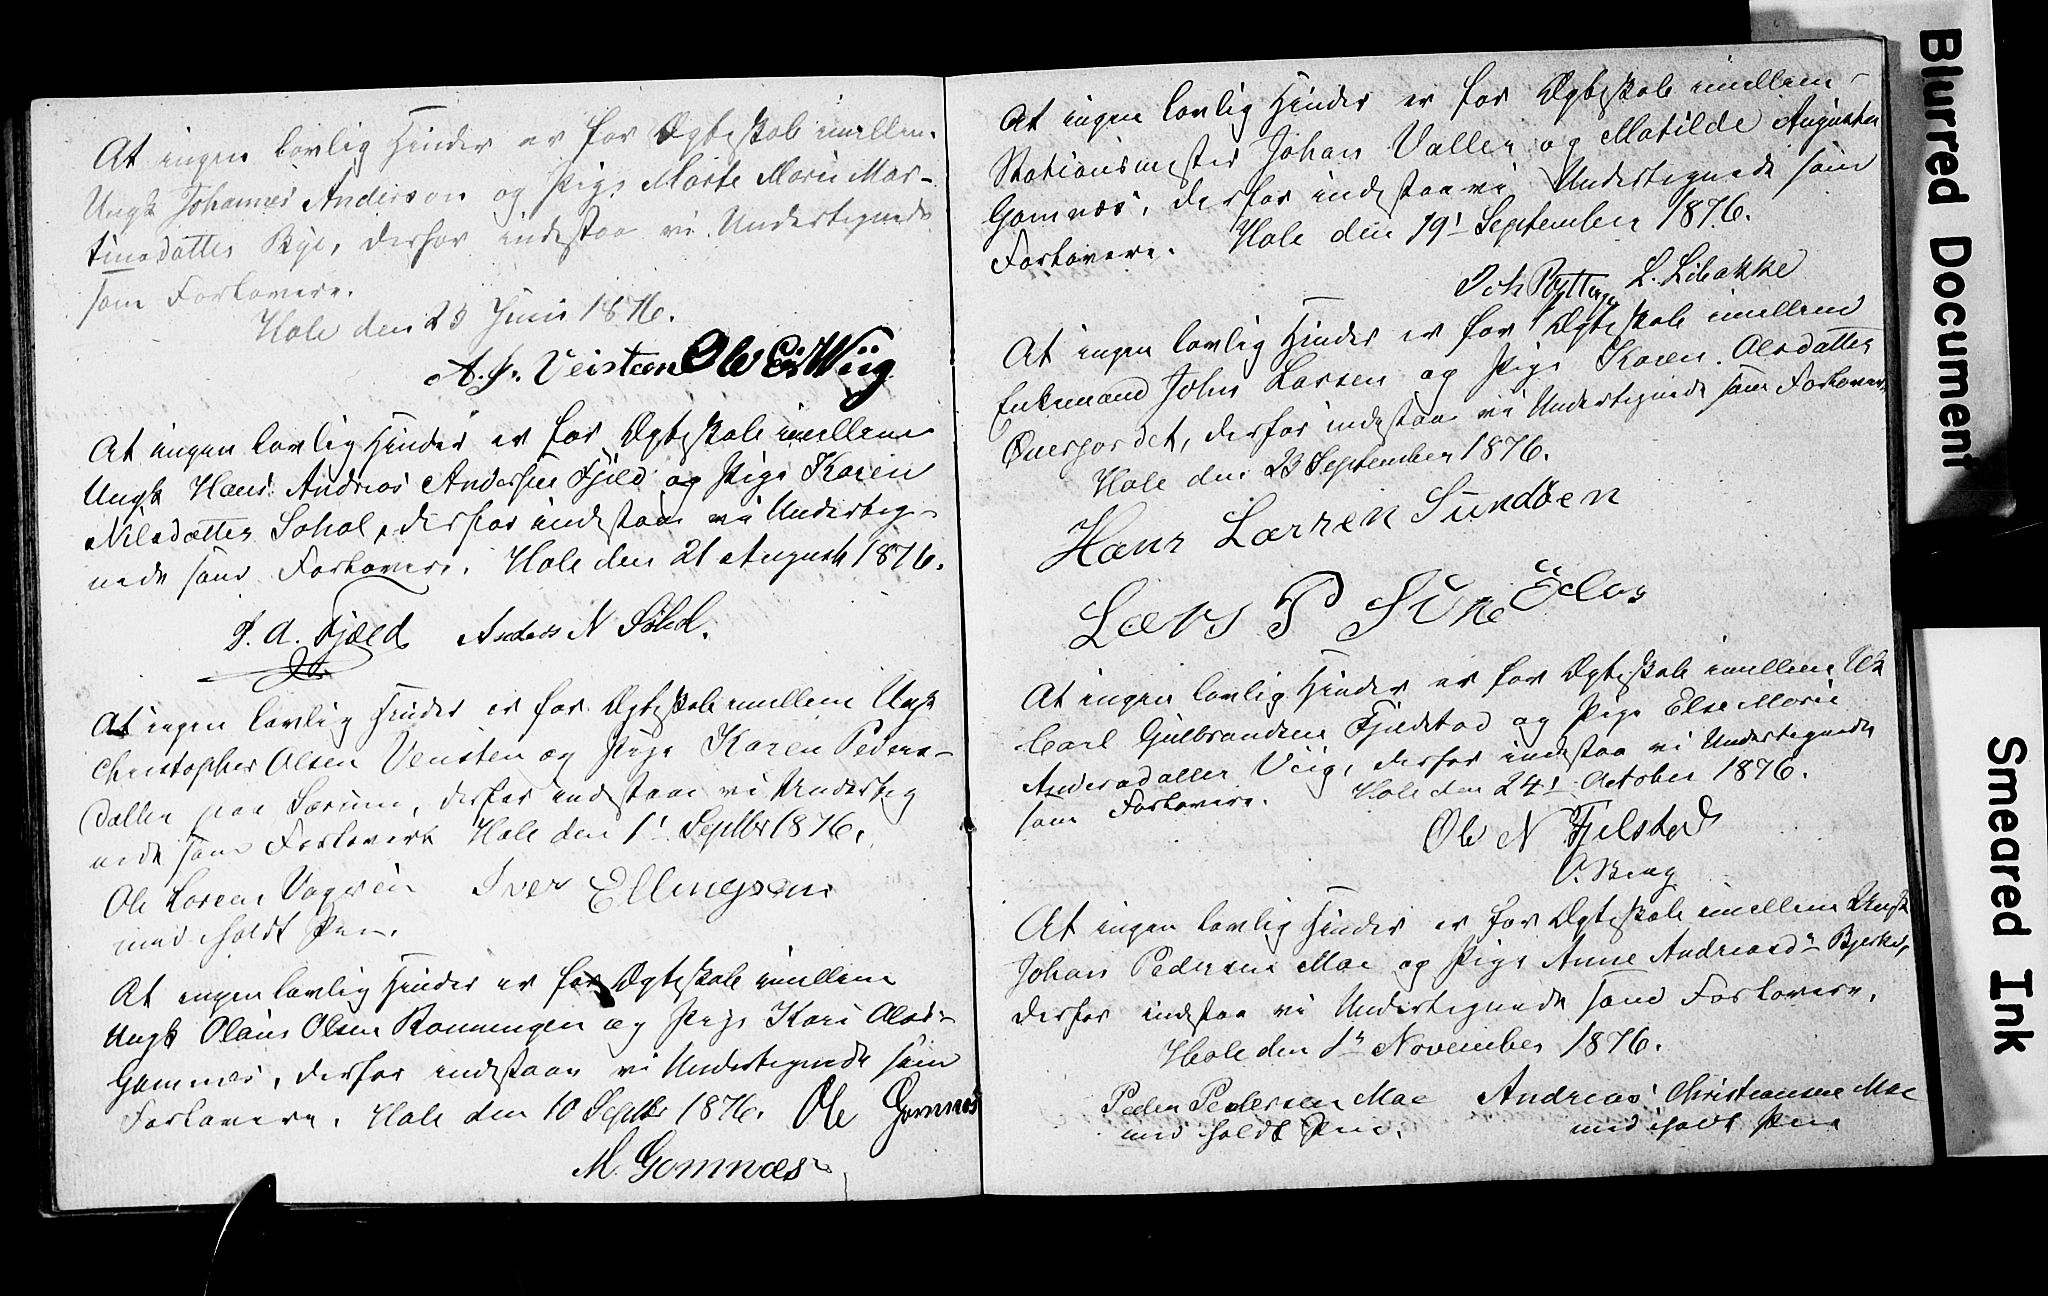 At ingen lovlig Hinder er for Ægteskab imellem
Ungk Johannes Anderson og Pige Marte Marie Mar-
tinsdatter Bye, derfor indestaa vi Undertegnede
som Forlovere.
Hole den 23 Juni 1876.
A. P. Veisteen Ole Er Wiig
At ingen lovlig Hinder er for Ægteskab imellem
Ungk Hans Andreas Andersen Fjeld og Pige Karen
Nilsdatter Sohol, derfor indestaa vi Underteg-
nede som Forlovere. Hole den 21 August 1876.
P. A. Fjæld Anders N Søhol.
At ingen lovlig Hinder er for Ægteskab imellem Ungk
Christopher Olsen Veisten og Pige Karen Peders-
datter paa Særum, derfor indestaa vi Underteg
nede som Forlovere Hole den 1' Septbr 1876.
Ole Larsen Iver Ellingsen
med holdt Pen.
At ingen lovlig Hinder er for Ægteskab imellem
Ungk Olaus Olsen Rønningen og Pige Kari Olsd-
Gomnes, derfor indestaa vi Undertegnede som
Forlovere. Hole den 10 Septbr 1876. Ole Gomnæs
M. Gomnæs
At ingen lovlig Hinder er for Ægteskab imellem
Stationsmester Johan Valler og Matilde Augusta
Gomnæs, derfor indestaa vi Undertegnede som
Forlovere. Hole den 19' September 1876.
Joh Pøtting L. Libakke
At ingen lovlig Hinder er for Ægteskab imellem
Enkemand John Larsen og Pige Karen Olsdatter
Øversjordet, derfor indestaa vi Undertegnede som Forlovere,
Hole den 23 September 1876.
Hans Larsen Sundøen
Lars P
At ingen lovlig Hinder er for Ægteskab imellem Uk
Carl Gulbrandsen Fjeldstad og Pige Else Marie
Andersdatter Viig, derfor indestaa vi Undertegnede
som Forlovere. Hole den 24' October 1876.
Ole N Fjelstad
O. Berg
At ingen lovlig Hinder er for Ægteskab imellem Ungk
Johan Pedersen Moe og Pige Anne Andreasd- Bjerke,
derfor indestaa vi Undertegnede som Forlovere.
Hole den 1' November 1876.
Peder Pedersen Moe Andreas Christiansen Moe
med holdt Pen. med holdt Pen
Blurred Document
Smeared Ink